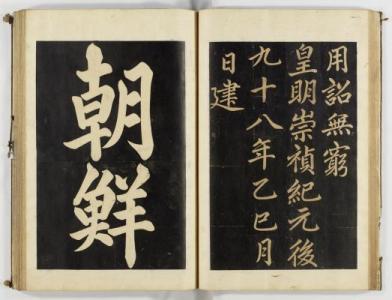 用詔無窮
皇明崇禎紀元後
九十八年乙巳月
日建
朝鮮